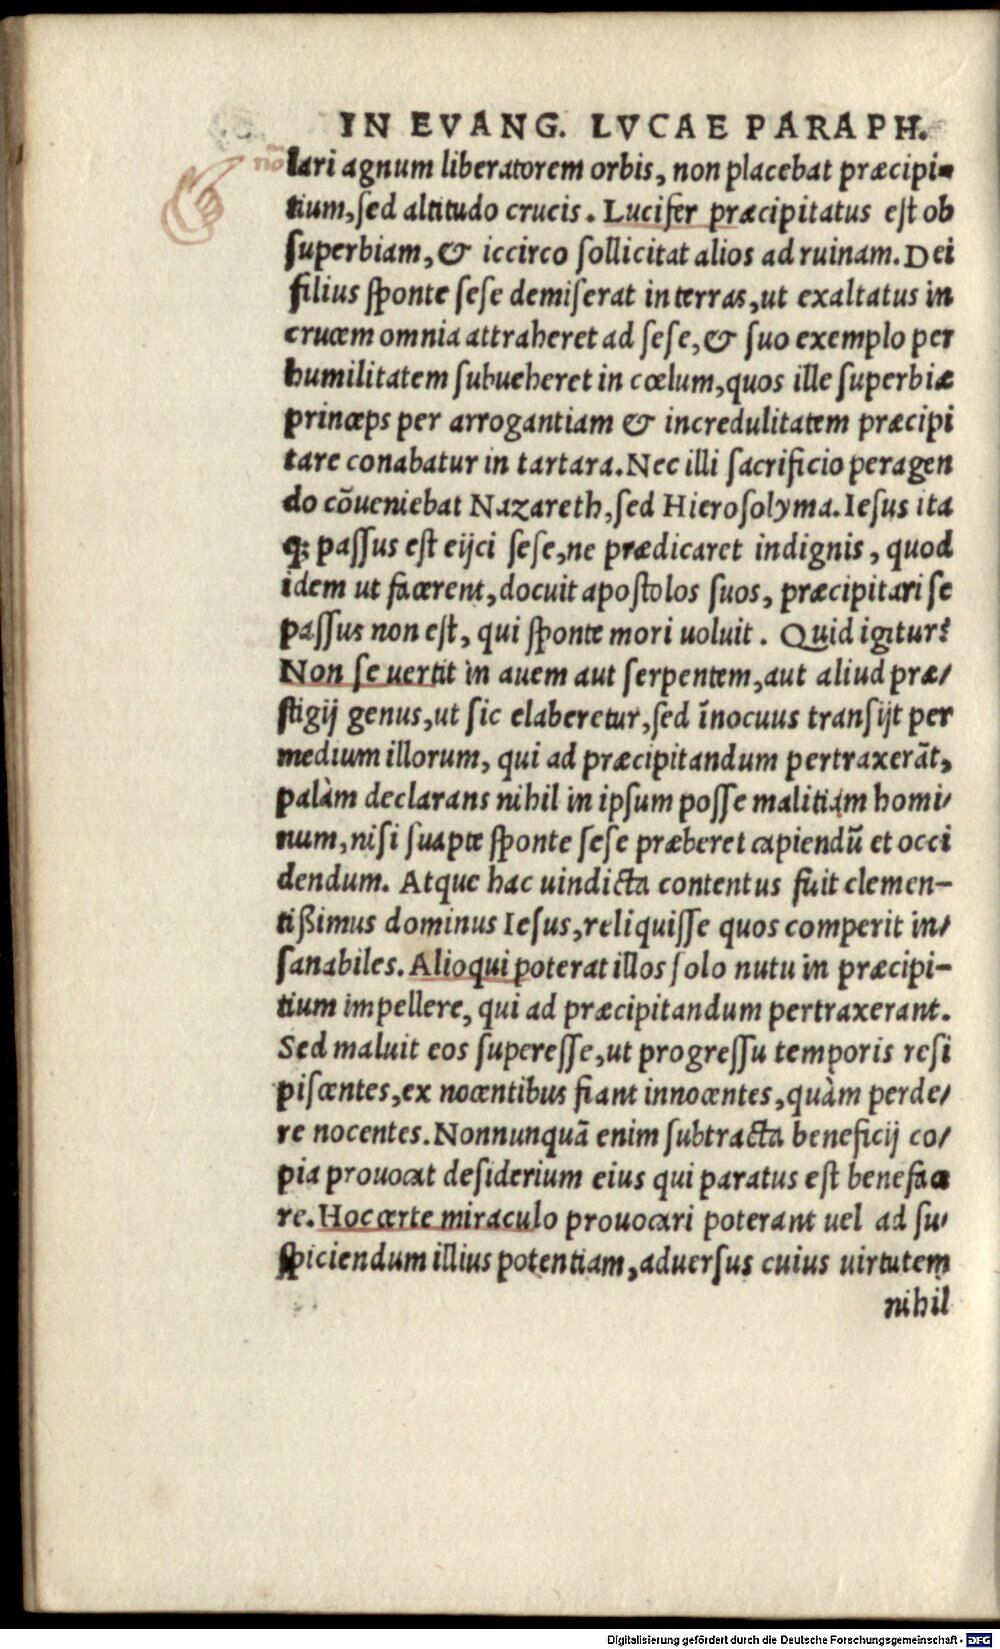 IN EVANG. LVCAE PARAPH.
lari agnum liberatorem orbis, non placebat præcipi-
tium, sed altitudo crucis. Lucifer præcipitatus est ob
superbiam, & iccirco sollicitat alios ad ruinam. Dei
filius sponte sese demiserat in terras, ut exaltatus in
crucem omnia attraheret ad sese, & suo exemplo per
humilitatem subueheret in cœlum, quos ille superbiæ
princeps per arrogantiam & incredulitatem præcipi
tare conabatur in tartara. Nec illi sacrificio peragen
do cōueniebat Nazareth, sed Hierosolyma. Iesus ita
q; passus est eijci sese, ne prædicaret indignis, quod
idem ut facerent, docuit apostolos suos, præcipitari se
passus non est, qui sponte mori uoluit. Quid igitur?
Non se uertit in auem aut serpentem, aut aliud præ/
stigij genus, ut sic elaberetur, sed īnocuus transijt per
medium illorum, qui ad præcipitandum pertraxerāt,
palàm declarans nihil in ipsum posse malitiam homi/
num, nisi suapte sponte sese præberet capiendū et occi
dendum. Atque hac uindicta contentus fuit clemen-
tißimus dominus Iesus, reliquisse quos comperit in/
sanabiles. Alioqui poterat illos solo nutu in præcipi-
tium impellere, qui ad præcipitandum pertraxerant.
Sed maluit eos superesse, ut progressu temporis resi
piscentes, ex nocentibus fiant innocentes, quàm perde/
re nocentes. Nonnunquā enim subtracta beneficij co/
pia prouocat desiderium eius qui paratus est beneface
re. Hoc certe miraculo prouocari poterant uel ad su/
spiciendum illius potentiam, aduersus cuius uirtutem
nihil
Digitalisierung gefördert durch die Deutsche Forschungsgemeinschaft - DFG